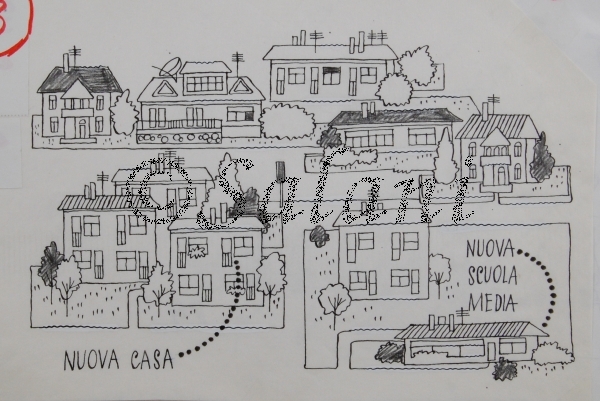 ©Salani
NUOVA
SCUOLA
MEDIA
NUOVA CASA